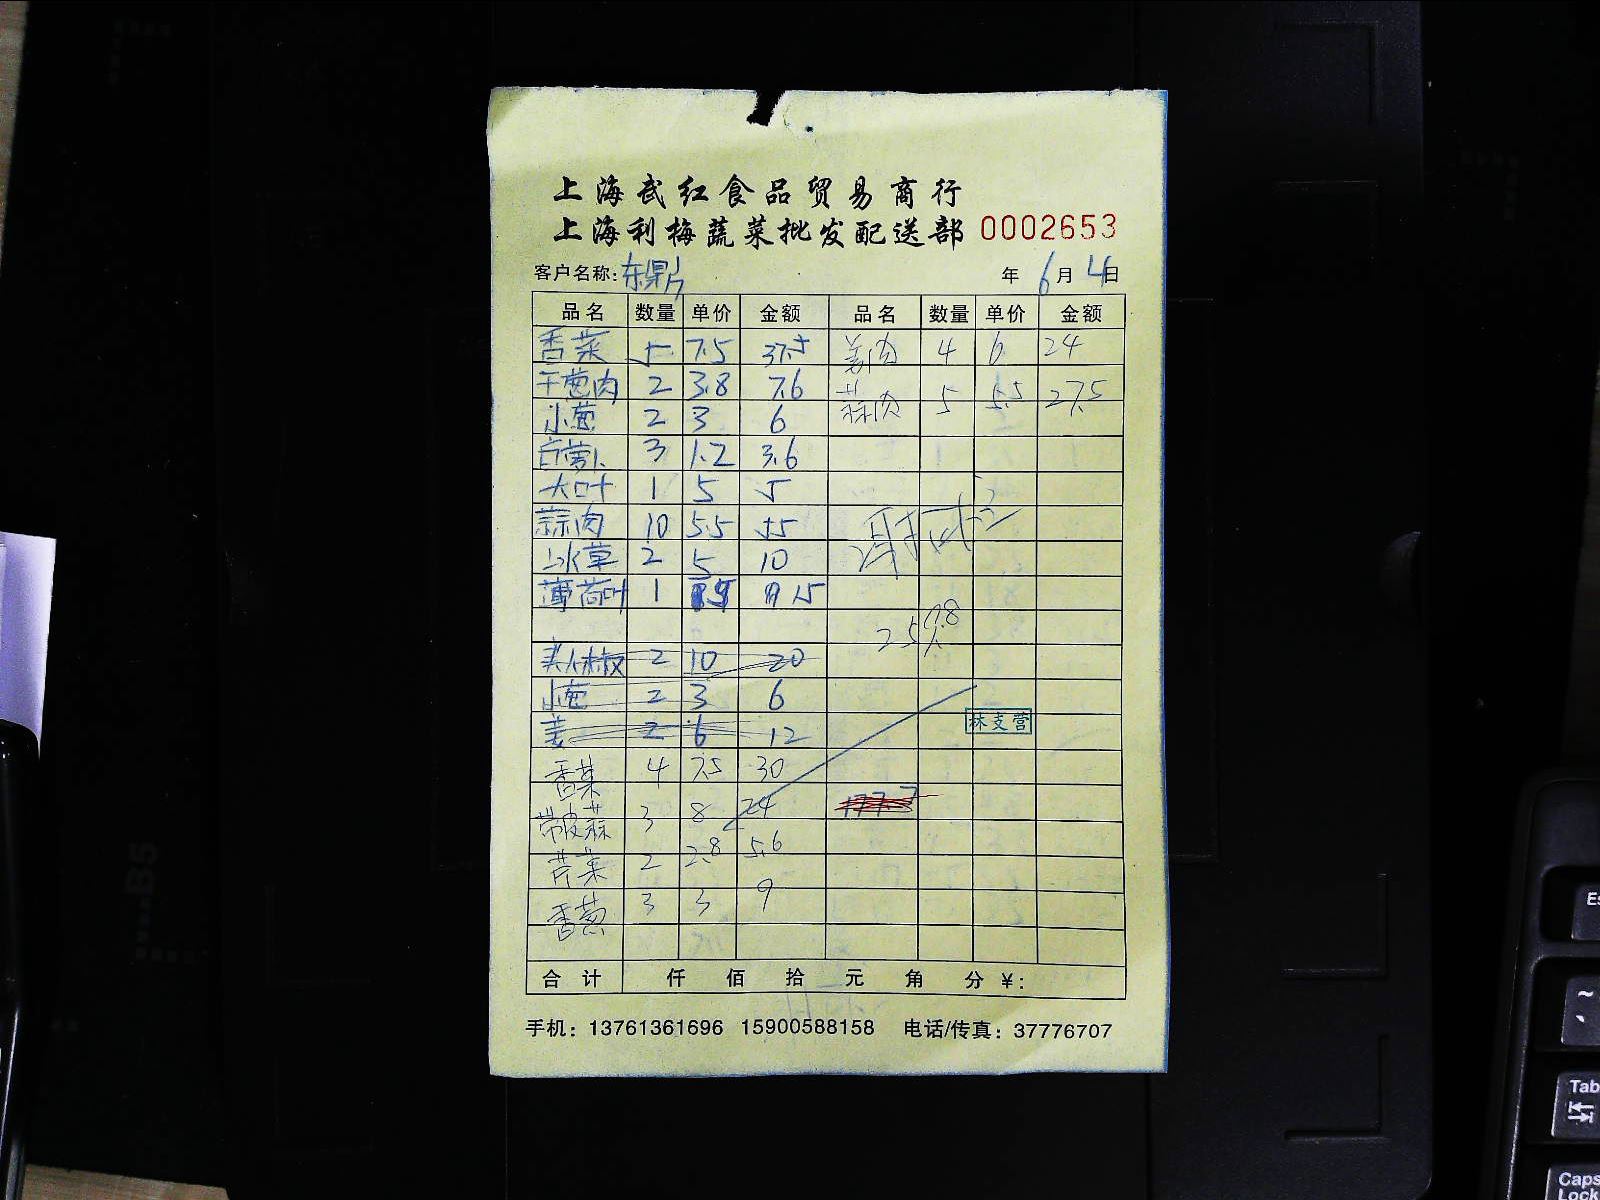 上海武红食品贸易商行
上海利梅蔬菜批发配送部 0002653
客户名称:东鼎 年 6月 4日
品名 数量 单价 金额 品名 数量 单价 金额
香菜 5 7.5 37.5 姜肉 4 6 24
干葱肉 2 3.8 7.6 蒜肉 5 5.5 27.5
小葱 2 3 6
白萝卜 3 1.2 3.6
大叶 1 5 5
蒜肉 10 5.5 55
冰草 2 5 10
薄荷叶 1 15 15
美人椒 2 10 20
小葱 2 3 6
姜 2 6 12
林支营
香菜 4 7.5 30
带皮蒜 3 8 24 177.7
芹菜 2 2.8 5.6
香葱 3 3 9
合计 仟 佰 拾 元 角 分 ¥:
手机: 13761361696 15900588158 电话/传真: 37776707
Es
~
Tab
Caps
Lock
B5